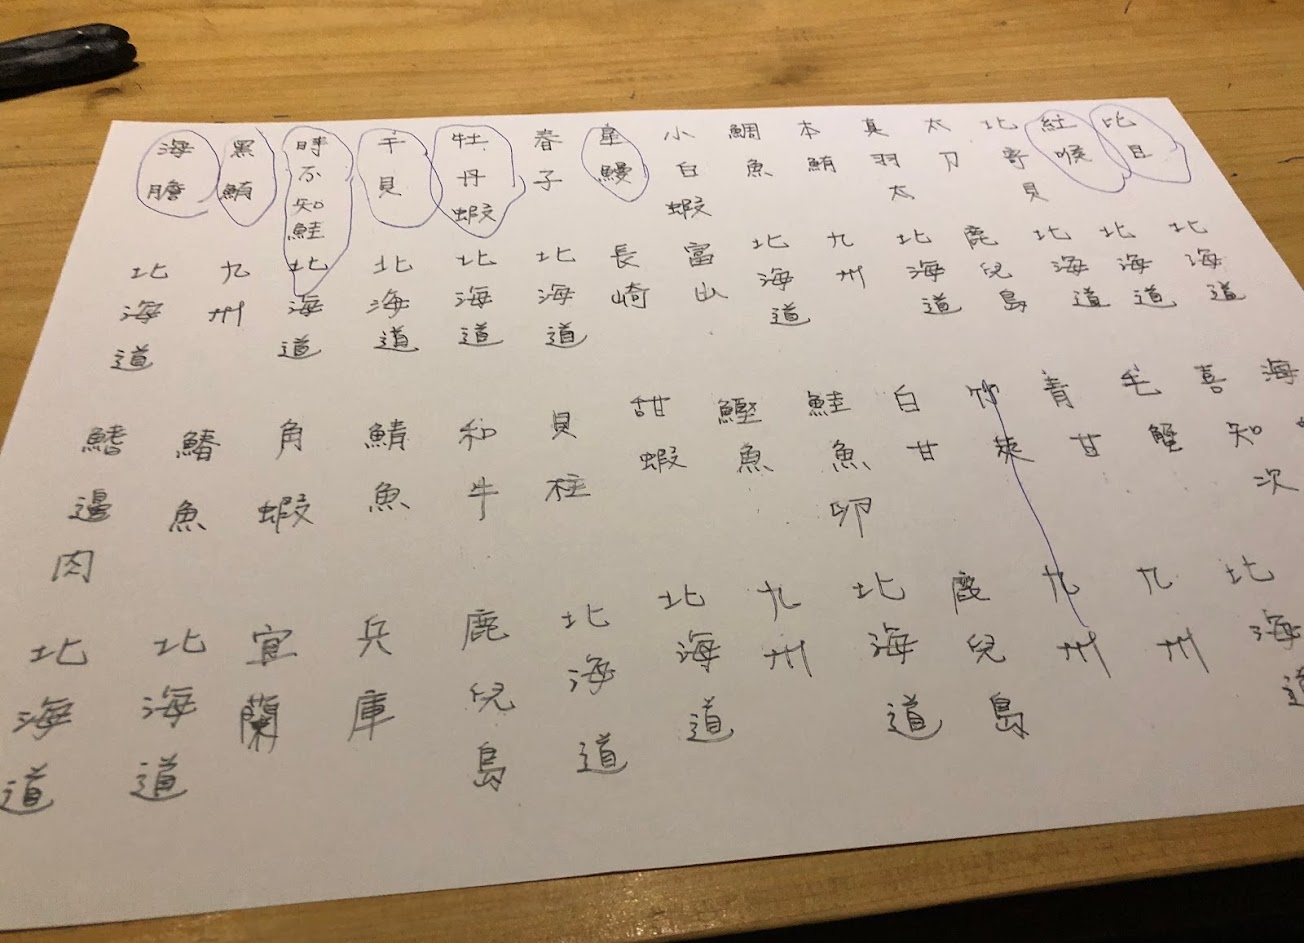 比目
北海道
紅喉
北海道
北寄貝
北海道
太刀
鹿兒島
真羽太
北海道
本鮪
九州
鯛魚
北海道
小白蝦
富山
星鰻
長崎
春子
北海道
牡丹蝦
北海道
干貝
北海道
時不知鮭
北海道
黑鮪
九州
海膽
北海道
海
喜知次
北海道
毛蟹
九州
青甘
九州
竹莢
鹿兒島
白甘
北海道
鮭魚卵
九州
鰹魚
北海道
甜蝦
北海道
貝柱
鹿兒島
和牛
兵庫
鯖魚
宜蘭
角蝦
北海道
鰆魚
北海道
鰭邊肉